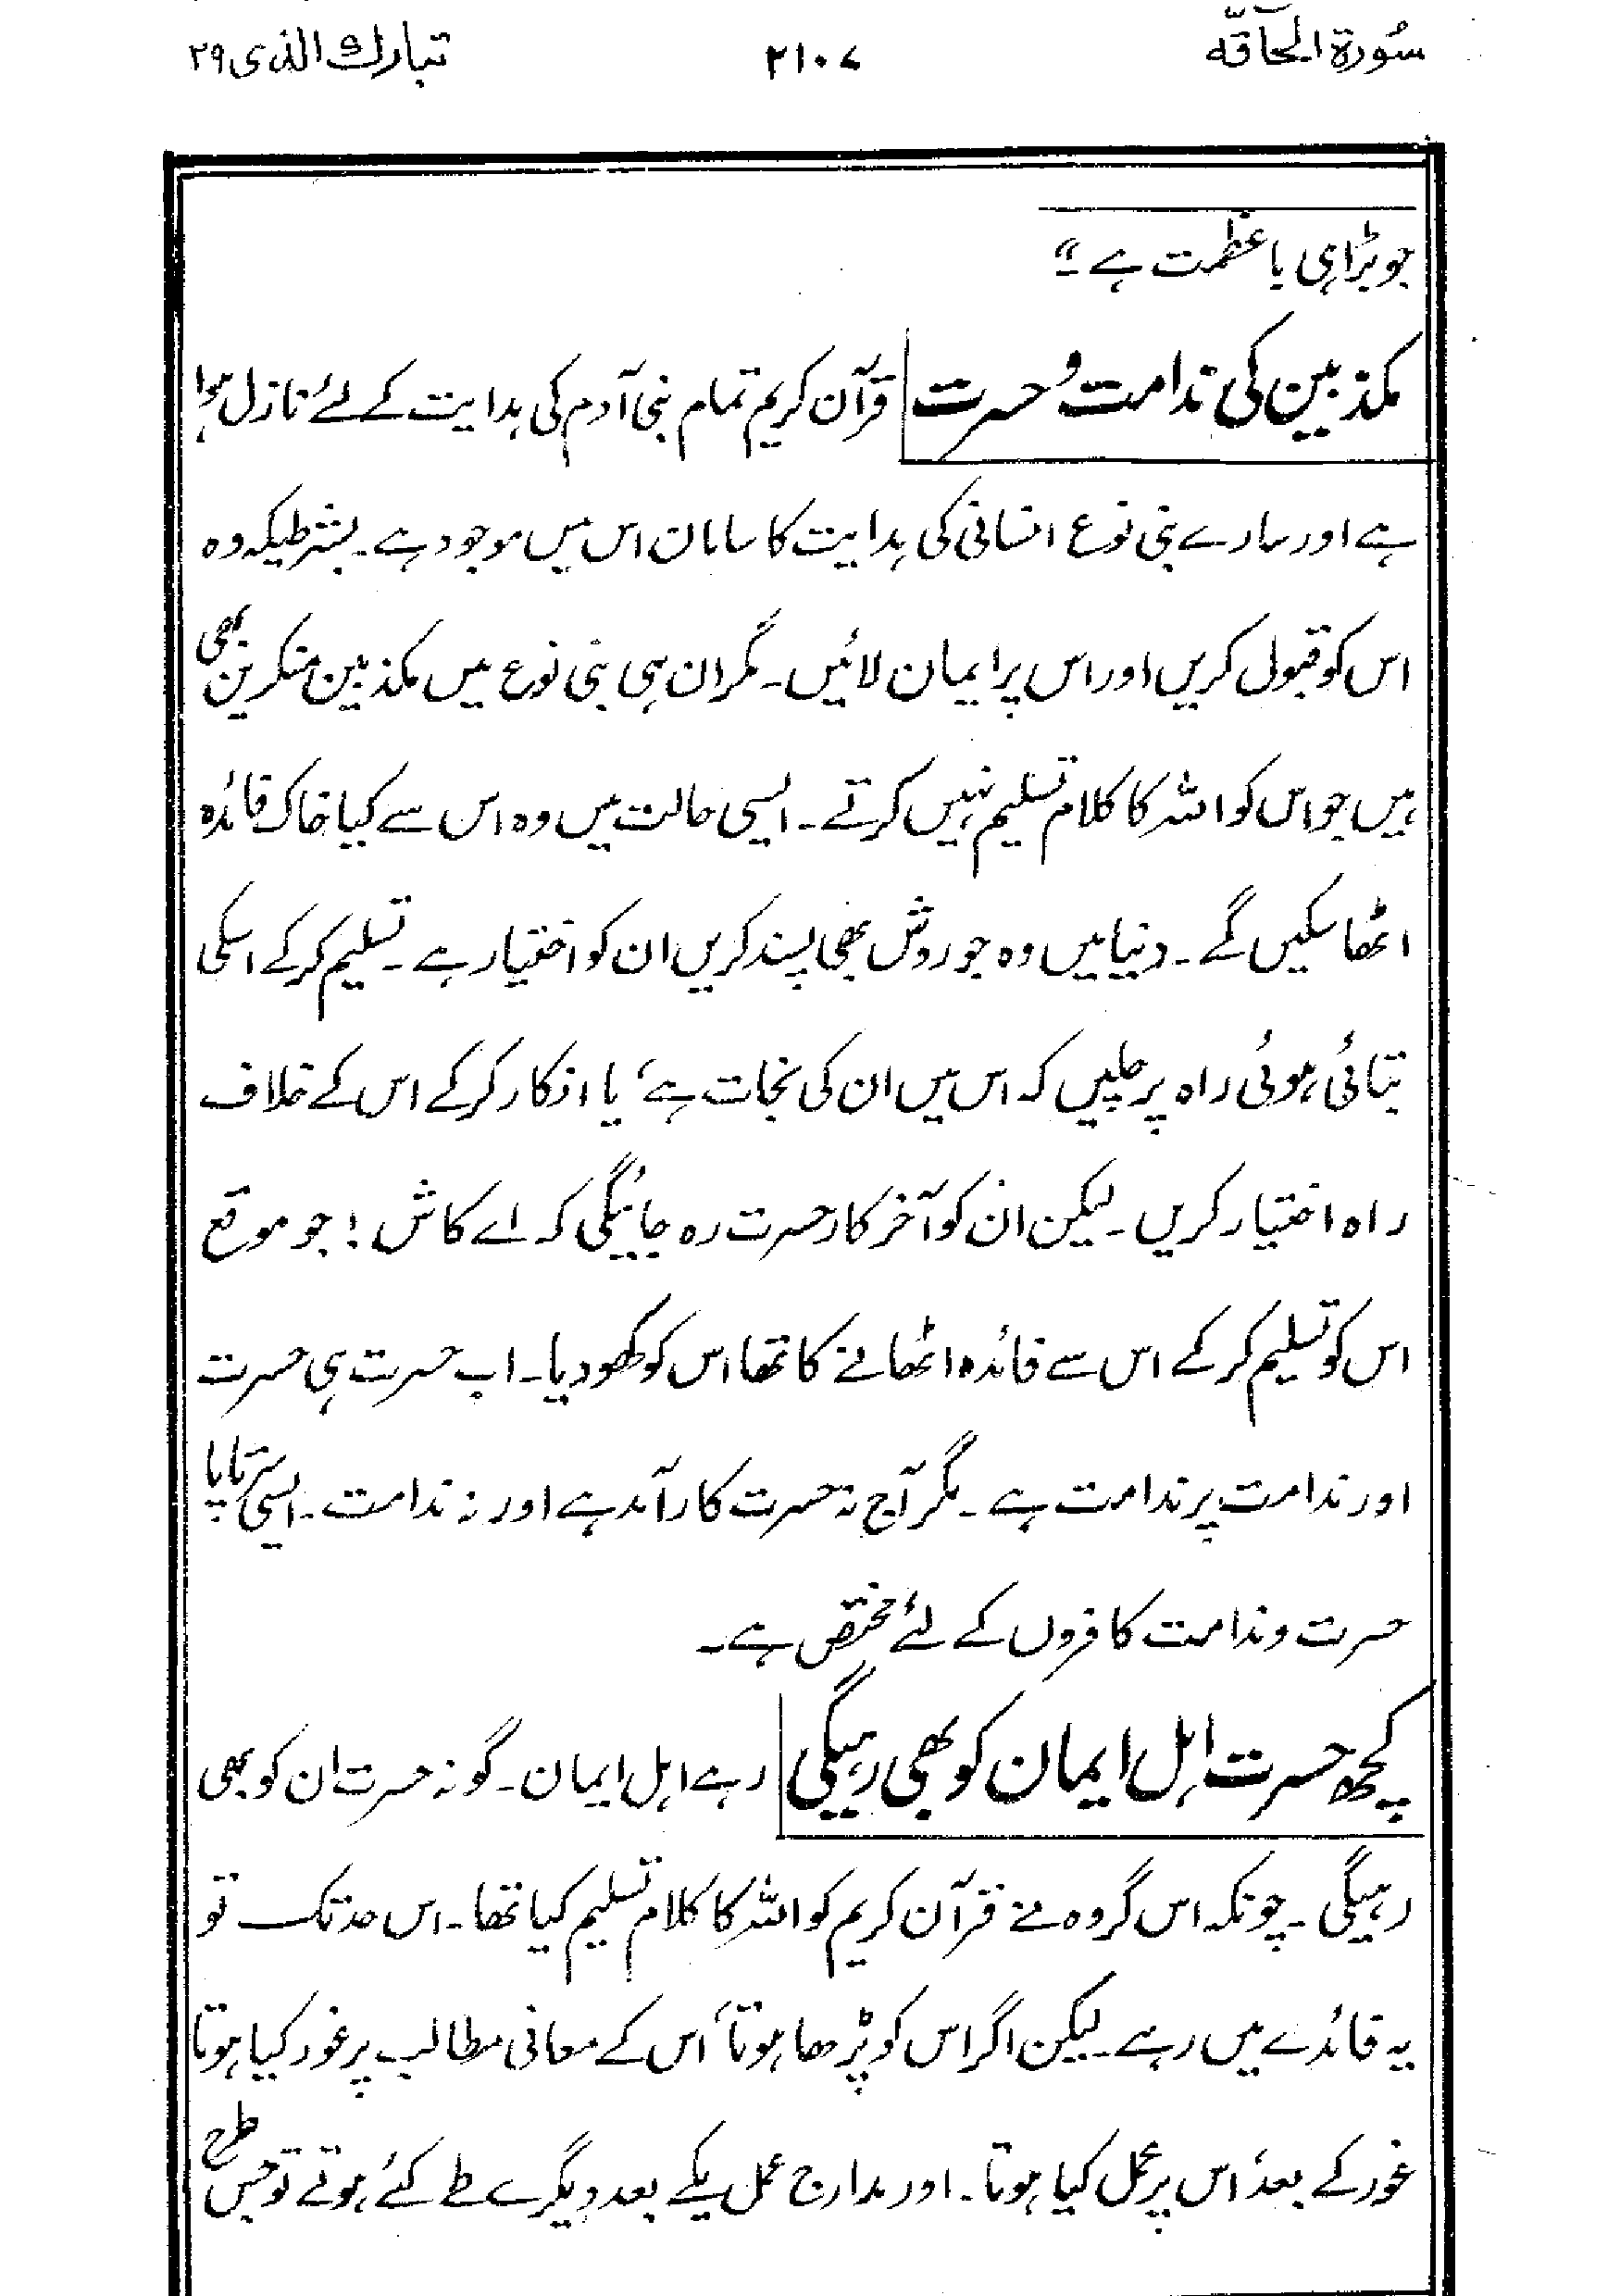 سُورۃ الحآقّہ ۲۱۰۷ تبارك الذی ۲۹
جو بڑا ہی باعظمت ہے۔"
مکذبین کی ندامت و حسرت قرآن کریم تمام بنی آدم کی ہدایت کے لئے نازل ہوا
ہے اور سارے بنی نوع انسانی کی ہدایت کا سامان اس میں موجود ہے۔ بشرطیکہ وہ
اس کو قبول کریں اور اس پر ایمان لائیں۔ مگر ان ہی بنی نوع میں مکذبین منکرین بھی
ہیں جو اس کو اللہ کا کلام تسلیم نہیں کرتے۔ ایسی حالت میں وہ اس سے کیا خاک فائدہ
اٹھا سکیں گے۔ دنیا میں وہ جو روش بھی پسند کریں ان کو اختیار ہے۔ تسلیم کر کے اسکی
بتائی ہوئی راہ پر چلیں کہ اس میں ان کی نجات ہے، یا انکار کر کے اس کے خلاف
راہ اختیار کریں۔ لیکن ان کو آخر کار حسرت رہ جائیگی کہ اے کاش! جو موقع
اس کو تسلیم کر کے اس سے فائدہ اٹھانے کا تھا اس کو کھو دیا۔ اب حسرت ہی حسرت
اور ندامت پر ندامت ہے۔ مگر آج نہ حسرت کار آمد ہے اور نہ ندامت۔ ایسی سرتاپا
حسرت و ندامت کافروں کے لئے مختص ہے۔
کچھ حسرت اہل ایمان کو بھی رہیگی رہے اہل ایمان۔ گو نہ حسرت ان کو بھی
رہیگی۔ چونکہ اس گروہ نے قرآن کریم کو اللہ کا کلام تسلیم کیا تھا۔ اس حد تک تو
یہ فائدے میں رہے۔ لیکن اگر اس کو پڑھا ہوتا، اس کے معانی مطالب پر غور کیا ہوتا
غور کے بعد، اس پر عمل کیا ہوتا۔ اور مدارج عمل یکے بعد دیگرے طے کئے ہوتے تو جس طرح